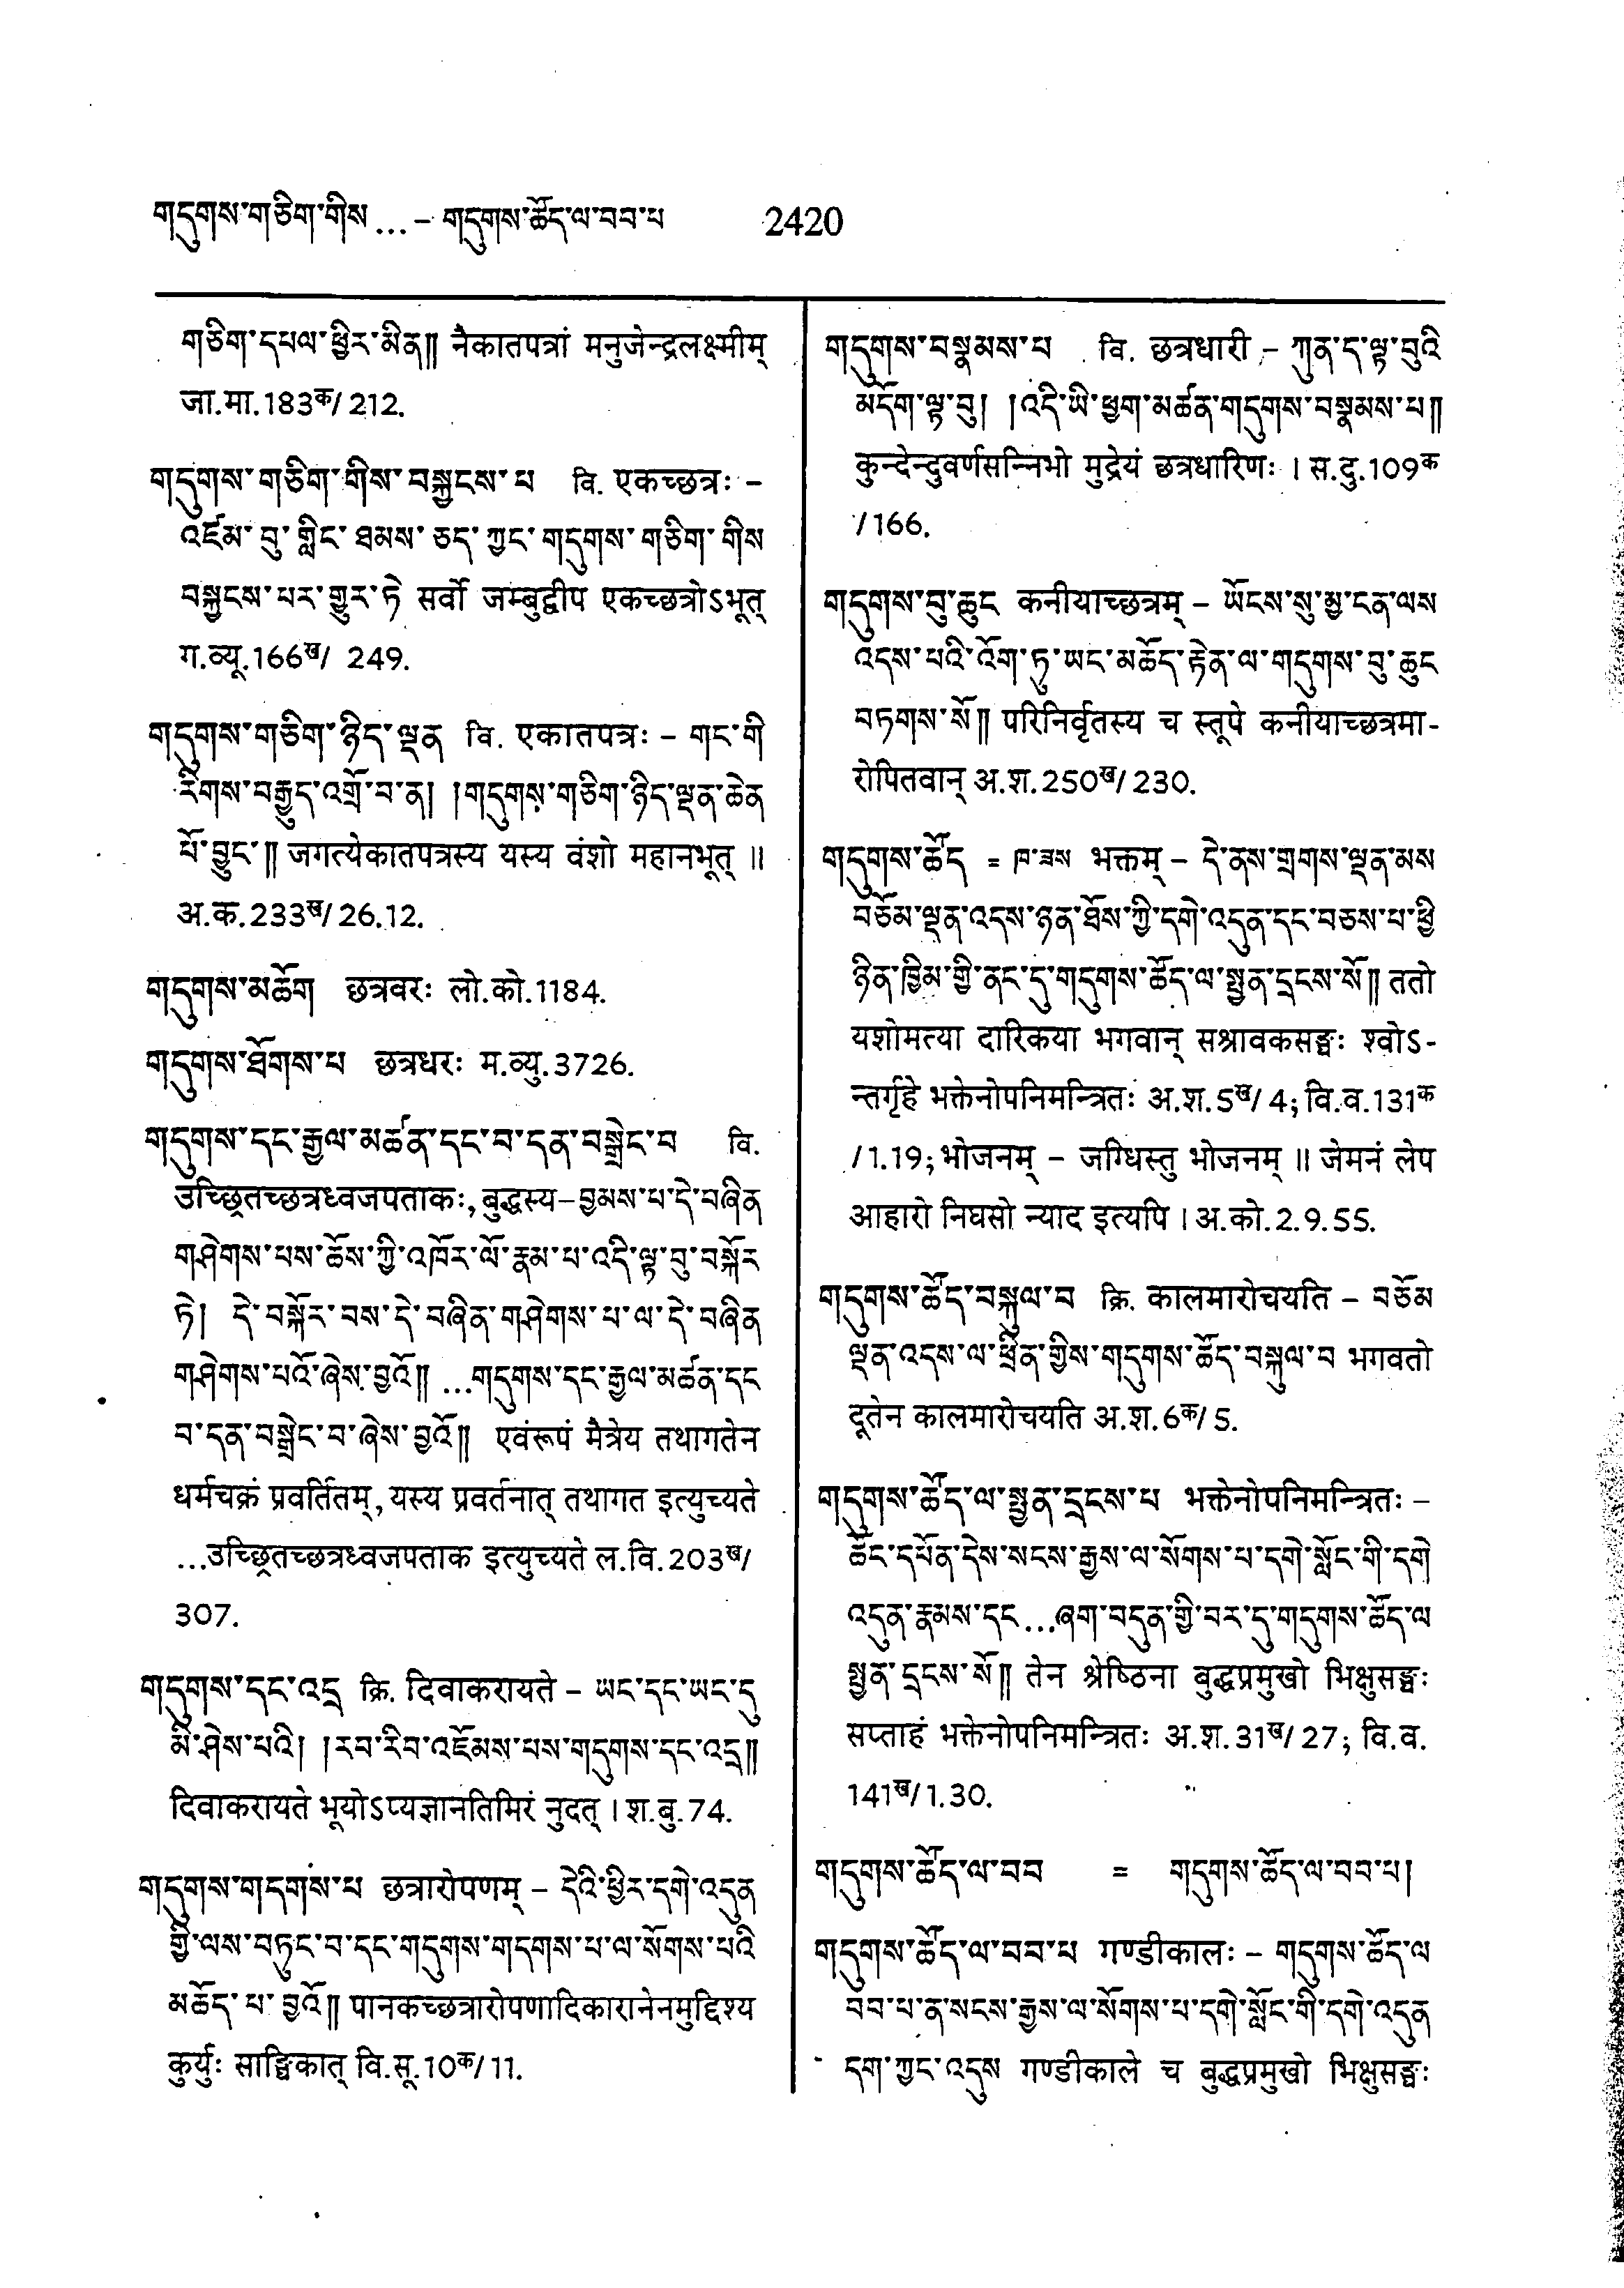 གདུགས་གཅིག་གིས ... – གདུགས་ཚོད་ལ་བབ་པ 2420
གཅིག་དཔལ་ཕྱིར་མིན༎ नैकातपत्रां मनुजेन्द्रलक्ष्मीम्
जा.मा.183क/212.
གདུགས་གཅིག་གིས་བསྐྱངས་པ वि. एकच्छत्रः –
འཛམ་བུ་གླིང་ཐམས་ཅད་ཀྱང་གདུགས་གཅིག་གིས
བསྐྱངས་པར་གྱུར་ཏེ सर्वो जम्बुद्वीप एकच्छत्रोऽभूत्
ग.व्यू.166ख/ 249.
གདུགས་གཅིག་ཉིད་ལྡན वि. एकातपत्रः – གང་གི
རིགས་བརྒྱུད་འགྲོ་བ་ན། །གདུགས་གཅིག་ཉིད་ལྡན་ཆེན
པོ་བྱུང་༎ जगत्येकातपत्रस्य यस्य वंशो महानभूत् ॥
अ.क.233ख/26.12.
གདུགས་མཆོག छत्रवरः लो.को.1184.
གདུགས་ཐོགས་པ छत्रधरः म.व्यु.3726.
གདུགས་དང་རྒྱལ་མཚན་དང་བ་དན་བསྒྲེང་བ वि.
उच्छ्रितच्छत्रध्वजपताकः, बुद्धस्य–བྱམས་པ་དེ་བཞིན
གཤེགས་པས་ཆོས་ཀྱི་འཁོར་ལོ་རྣམ་པ་འདི་ལྟ་བུ་བསྐོར
ཏེ། དེ་བསྐོར་བས་དེ་བཞིན་གཤེགས་པ་ལ་དེ་བཞིན
གཤེགས་པའོ་ཞེས་བྱའོ༎ ...གདུགས་དང་རྒྱལ་མཚན་དང
བ་དན་བསྒྲེང་བ་ཞེས་བྱའོ༎ एवंरूपं मैत्रेय तथागतेन
धर्मचक्रं प्रवर्तितम्, यस्य प्रवर्तनात् तथागत इत्युच्यते
...उच्छ्रितच्छत्रध्वजपताक इत्युच्यते ल.वि.203ख/
307.
གདུགས་དང་འདྲ क्रि. दिवाकरायते – ཡང་དང་ཡང་དུ
མི་ཤེས་པའི། །རབ་རིབ་འཇོམས་པས་གདུགས་དང་འདྲ༎
दिवाकरायते भूयोऽप्यज्ञानतिमिरं नुदत् । श.बु.74.
གདུགས་གདགས་པ छत्रारोपणम् – དེའི་ཕྱིར་དགེ་འདུན
གྱི་ལས་བཏུང་བ་དང་གདུགས་གདགས་པ་ལ་སོགས་པའི
མཆོད་པ་བྱའོ༎ पानकच्छत्रारोपणादिकारानेनमुद्दिश्य
कुर्युः साङ्घिकात् वि.सू.10क/11.
གདུགས་བསྣམས་པ वि. छत्रधारी – ཀུན་ད་ལྟ་བུའི
མདོག་ལྟ་བུ། །འདི་ཡི་ཕྱག་མཚན་གདུགས་བསྣམས་པ༎
कुन्देन्दुवर्णसन्निभो मुद्रेयं छत्रधारिणः । स.दु.109क
/166.
གདུགས་བུ་ཆུང कनीयाच्छत्रम् – ཡོངས་སུ་མྱ་ངན་ལས
འདས་པའི་འོག་ཏུ་ཡང་མཆོད་རྟེན་ལ་གདུགས་བུ་ཆུང
བཏགས་སོ༎ परिनिर्वृतस्य च स्तूपे कनीयाच्छत्रमा-
रोपितवान् अ.श.250ख/230.
གདུགས་ཚོད = ཁ་ཟས भक्तम् – དེ་ནས་གྲགས་ལྡན་མས
བཅོམ་ལྡན་འདས་ཉན་ཐོས་ཀྱི་དགེ་འདུན་དང་བཅས་པ་ཕྱི
ཉིན་ཁྱིམ་གྱི་ནང་དུ་གདུགས་ཚོད་ལ་སྤྱན་དྲངས་སོ༎ ततो
यशोमत्या दारिकया भगवान् सश्रावकसङ्घः श्वोऽ-
न्तर्गृहे भक्तेनोपनिमन्त्रितः अ.श.5ख/4; वि.व.131क
/1.19; भोजनम् – जग्धिस्तु भोजनम् ॥ जेमनं लेप
आहारो निघसो न्याद इत्यपि । अ.को.2.9.55.
གདུགས་ཚོད་བསྐུལ་བ क्रि. कालमारोचयति – བཅོམ
ལྡན་འདས་ལ་ཕྲིན་གྱིས་གདུགས་ཚོད་བསྐུལ་བ भगवतो
दूतेन कालमारोचयति अ.श.6क/5.
གདུགས་ཚོད་ལ་སྤྱན་དྲངས་པ भक्तेनोपनिमन्त्रितः –
ཚོང་དཔོན་དེས་སངས་རྒྱས་ལ་སོགས་པ་དགེ་སློང་གི་དགེ
འདུན་རྣམས་དང...ཞག་བདུན་གྱི་བར་དུ་གདུགས་ཚོད་ལ
སྤྱན་དྲངས་སོ༎ तेन श्रेष्ठिना बुद्धप्रमुखो भिक्षुसङ्घः
सप्ताहं भक्तेनोपनिमन्त्रितः अ.श.31ख/27; वि.व.
141ख/1.30.
གདུགས་ཚོད་ལ་བབ = གདུགས་ཚོད་ལ་བབ་པ།
གདུགས་ཚོད་ལ་བབ་པ गण्डीकालः – གདུགས་ཚོད་ལ
བབ་པ་ན་སངས་རྒྱས་ལ་སོགས་པ་དགེ་སློང་གི་དགེ་འདུན
དག་ཀྱང་འདུས गण्डीकाले च बुद्धप्रमुखो भिक्षुसङ्घः